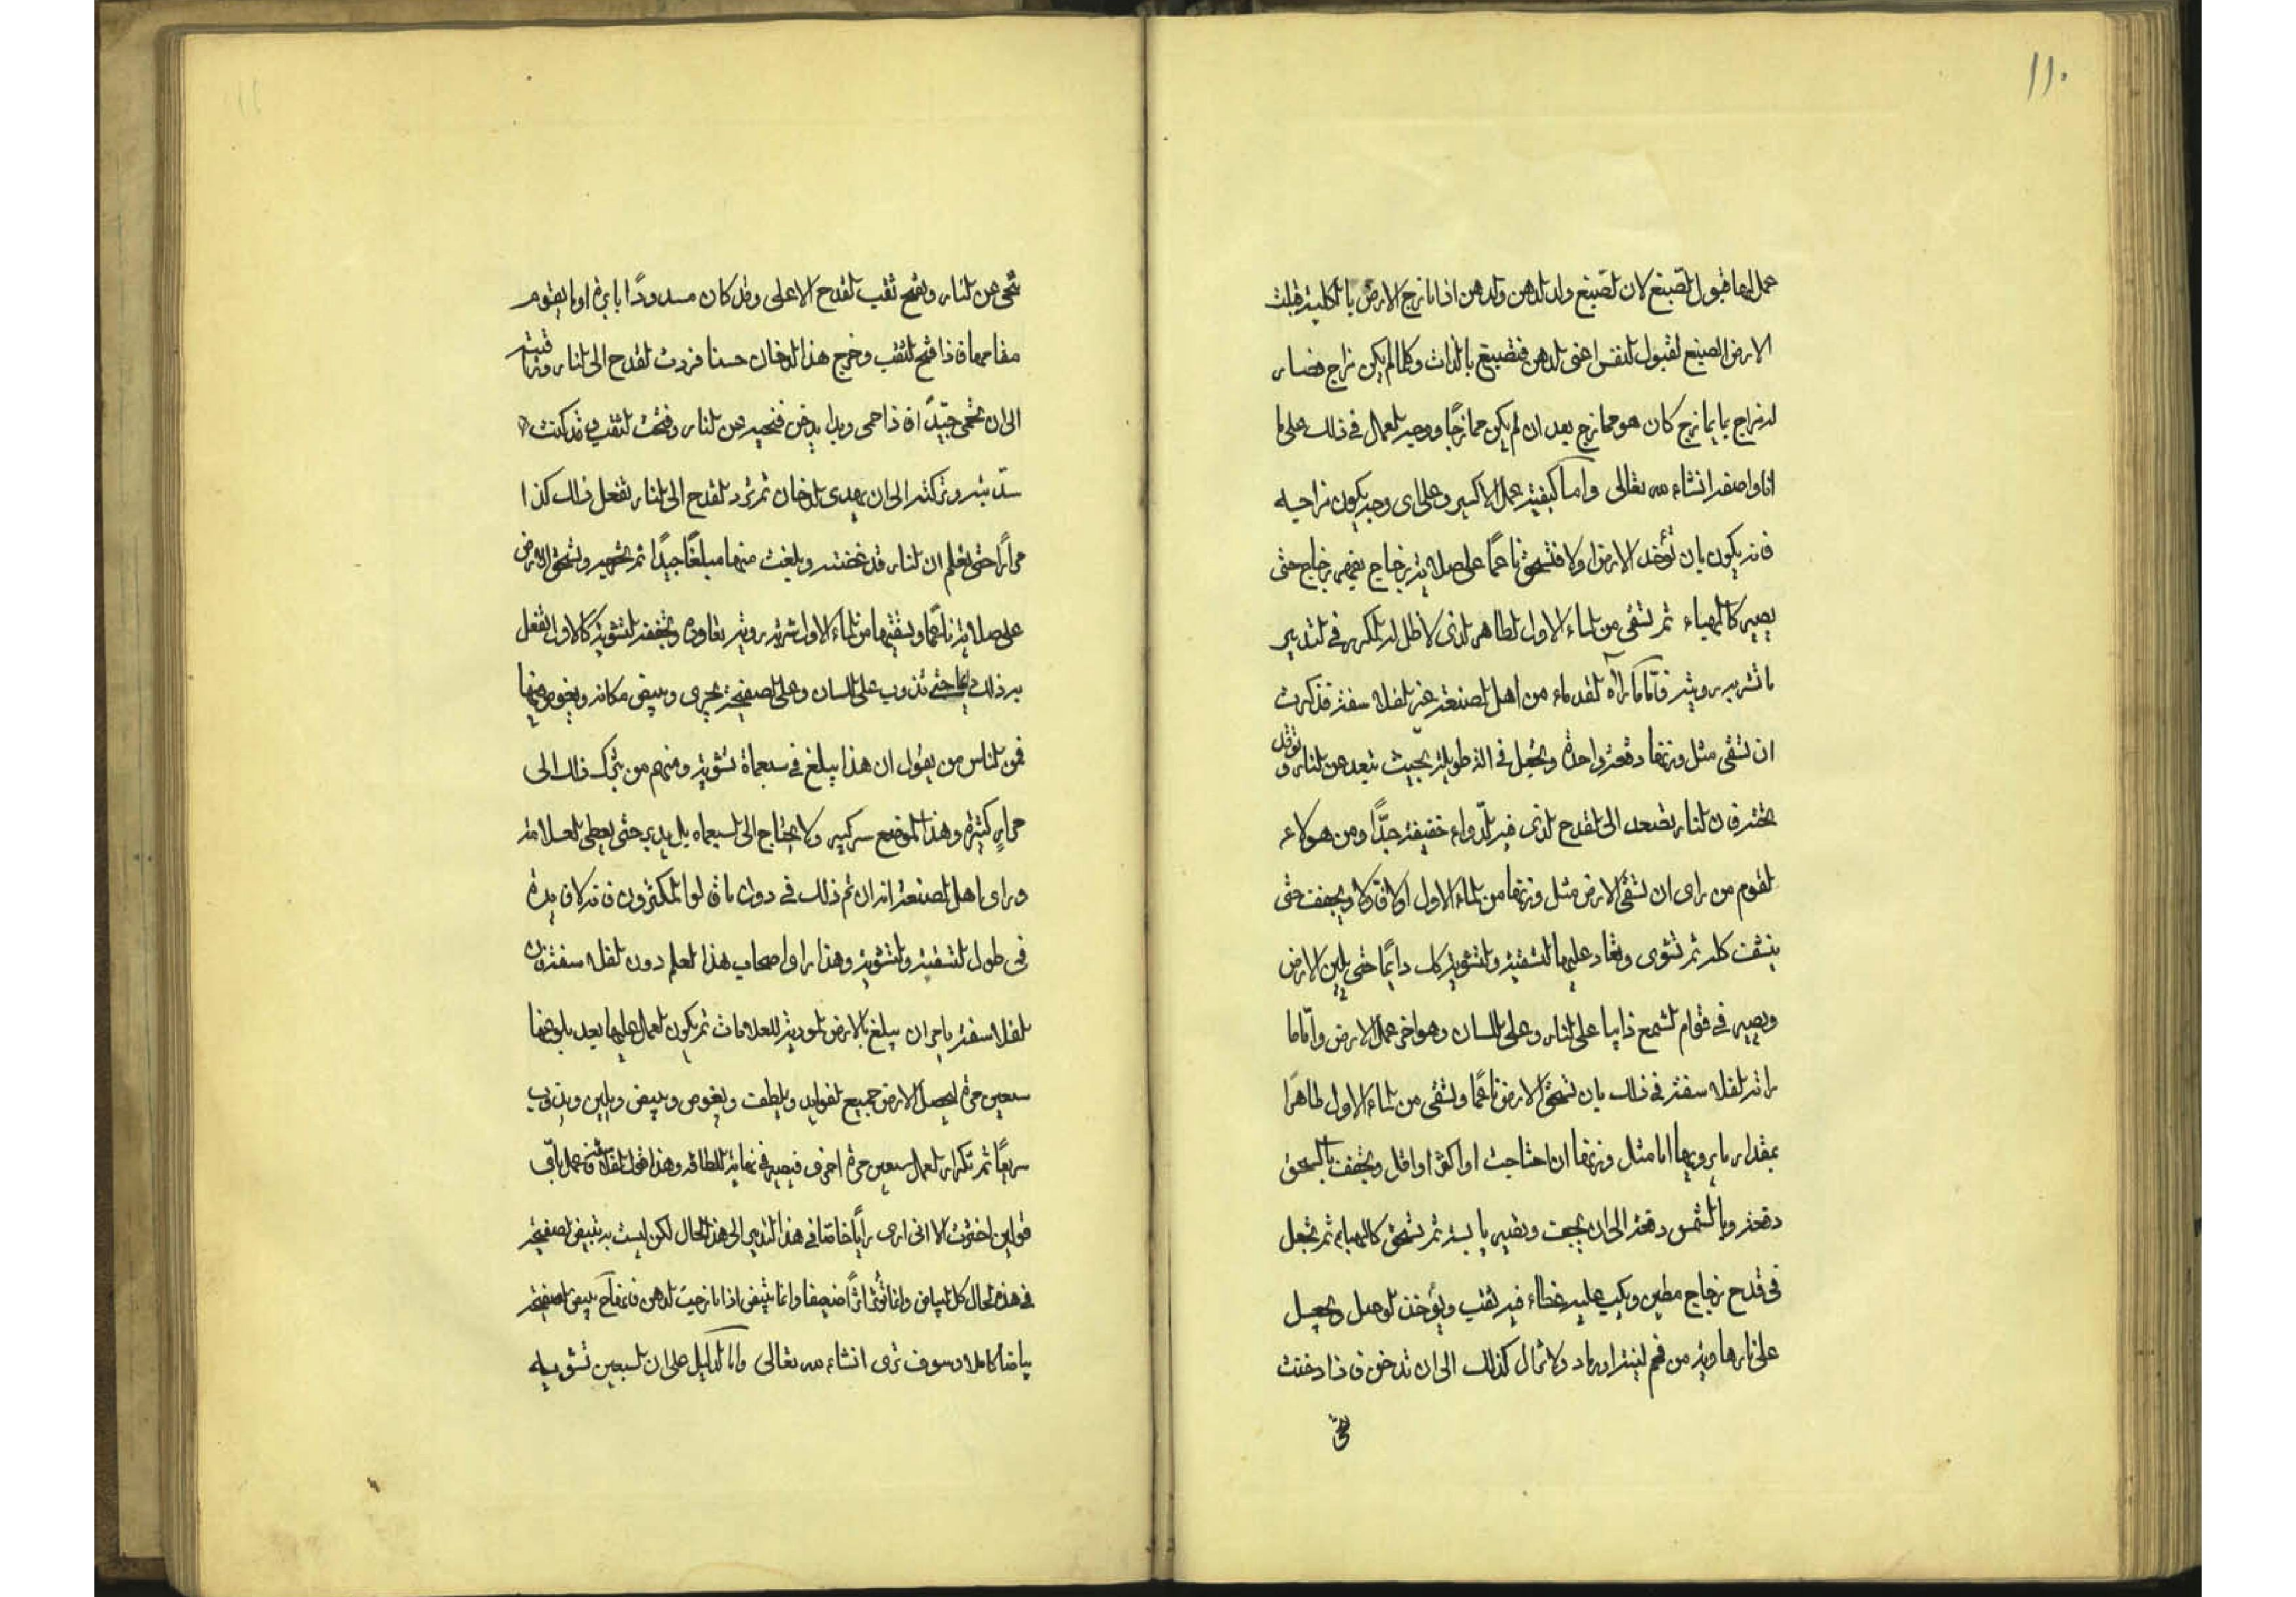 ١١٠
عمل لها قبول الصبغ لان الصبغ ولد الدهن والدهن اذا مازج الارض بالكلية قبلت
الارض الصبغ لقبول النفس اعنى الدهن فتصبغ بالذات وكلما لم يكن مزاج فصار
له مزاج بما يمازج كان هو ممازج بعد ان لم يكن ممازجًا ووجه العمل فى ذلك على ما
انا واصفه انشاء الله تعالى واما كيفية عمل الاكسير وعلى اى وجه يكون مزاجيه
فانه يكون بان تؤخذ الارض اولا فتسحق ناعمًا على صلاية زجاج بفهر زجاج حتى
يصير كالهباء ثم تسقى من الماء الاول الطاهر الذى لا ظل له المكرر فى التدبير
ما تشربه برويه فاما ما رآه القدماء من اهل الصنعة غير الفلاسفة فذكرت
ان تسقى مثل وزنها دفعة واحدة ويجعل فى آلة طويلة بحيث تبعد عن النار وتوقد
تحته فان النار تصعد الى القدح الذى فيه الدواء خفيفة جدًّا ومن هولاء
القوم من راى ان تسقى الارض مثل وزنها من الماء الاول اولا فاولا ويجفف حتى
ينشف كله ثم تشوى وتعاد عليها التسقية والتشوية كك دايمًا حتى يلين الارض
ويصير فى قوام الشمع ذايبا على النار وعلى اللسان وهو اخر عمل الارض واما ما
راته الفلاسفة فى ذلك بان تسحق الارض ناعمًا وتسقى من الماء الاول طاهرًا
بمقدار ما يرويها اما مثل وزنها ان احتاجت او اكثر او اقل ويجفف بالسحق
دفعة وبالشمس دفعة الى ان يجف وتصير يابسة ثم تسحق كالهباء ثم تجعل
فى قدح زجاج مطين ويكب عليه غطاء فيه ثقب ويؤخذ الوصل ويجعل
على نار هاوية من فحم لينة او رماد ولا تزال كذلك الى ان تدخن فاذا دخنت
نحى
نحى عن النار وتفتح ثقب القدح الاعلى وقد كان مسدودًا بابرة او ما يقوم
مقامها فاذا فتح الثقب وخرج هذا الدخان حسنا فردت القدح الى النار وتراقبته
الى ان تحمى جيّدًا فاذا حمى وبدا يدخن فنحيه عن النار وفتحت الثقب وقد كنت
سددته وتركته الى ان يهدى الدخان ثم ترد القدح الى النار تفعل ذلك كذا
مرارًا حتى تعلم ان النار قد غضته وبلغت منها مبلغًا جيدًا ثم تخرجه وتسحق الارض
على صلاية ناعمًا وتسقيها من الماء الاول شربه برويه بتعاوده وتجففه التشوية كالاول تفعل
به ذلك دايما حتى تذوب على اللسان وعلى الصفيحة تجرى وتبيض مكانه ويغوص فيها
فمن الناس من يقول ان هذا يبلغ فى سبعماة تشوية ومنهم من يترك ذلك الى
مرار كثيرة وهذا الموضع سر كبير ولا يحتاج الى السبعماه بل يدبر حتى يعطى العلامة
وراى اهل الصنعة انه ان تم ذلك فى دون ما قالوا المكثرون فانه لا فايدة
فى طول التسقية والتشوية وهذا راو اصحاب هذا العلم دون الفلاسفة فان
الفلاسفة يامر ان يبلغ بالارض المودية للعلامات ثم يكون العمل عليها بعد بلوغها
سبعين مرة ليحصل الارض جميع الفوايد ويلطف ويغوص وبيض ويلين ويذوب
سريعًا ثم تكرار العمل سبعين مرة اخرى فيصير فى نهاية اللطافه وهذا قول الفلاسفة فاعمل باى
قولين اخترت الا انى ارى رايًا خاصا فى هذا التدبير الى هذا الحال لكن ليست به تبييض لصفيحة
فى هذه الحال كل البياض وانما تؤثر اثرًا ضعيفا وانما تبيض اذا مازجت الدهن فانها ح تبيض الصفيحة
بياضا كاملا وسوف ترى انشاء الله تعالى واما الدليل على ان السبعين تشويه